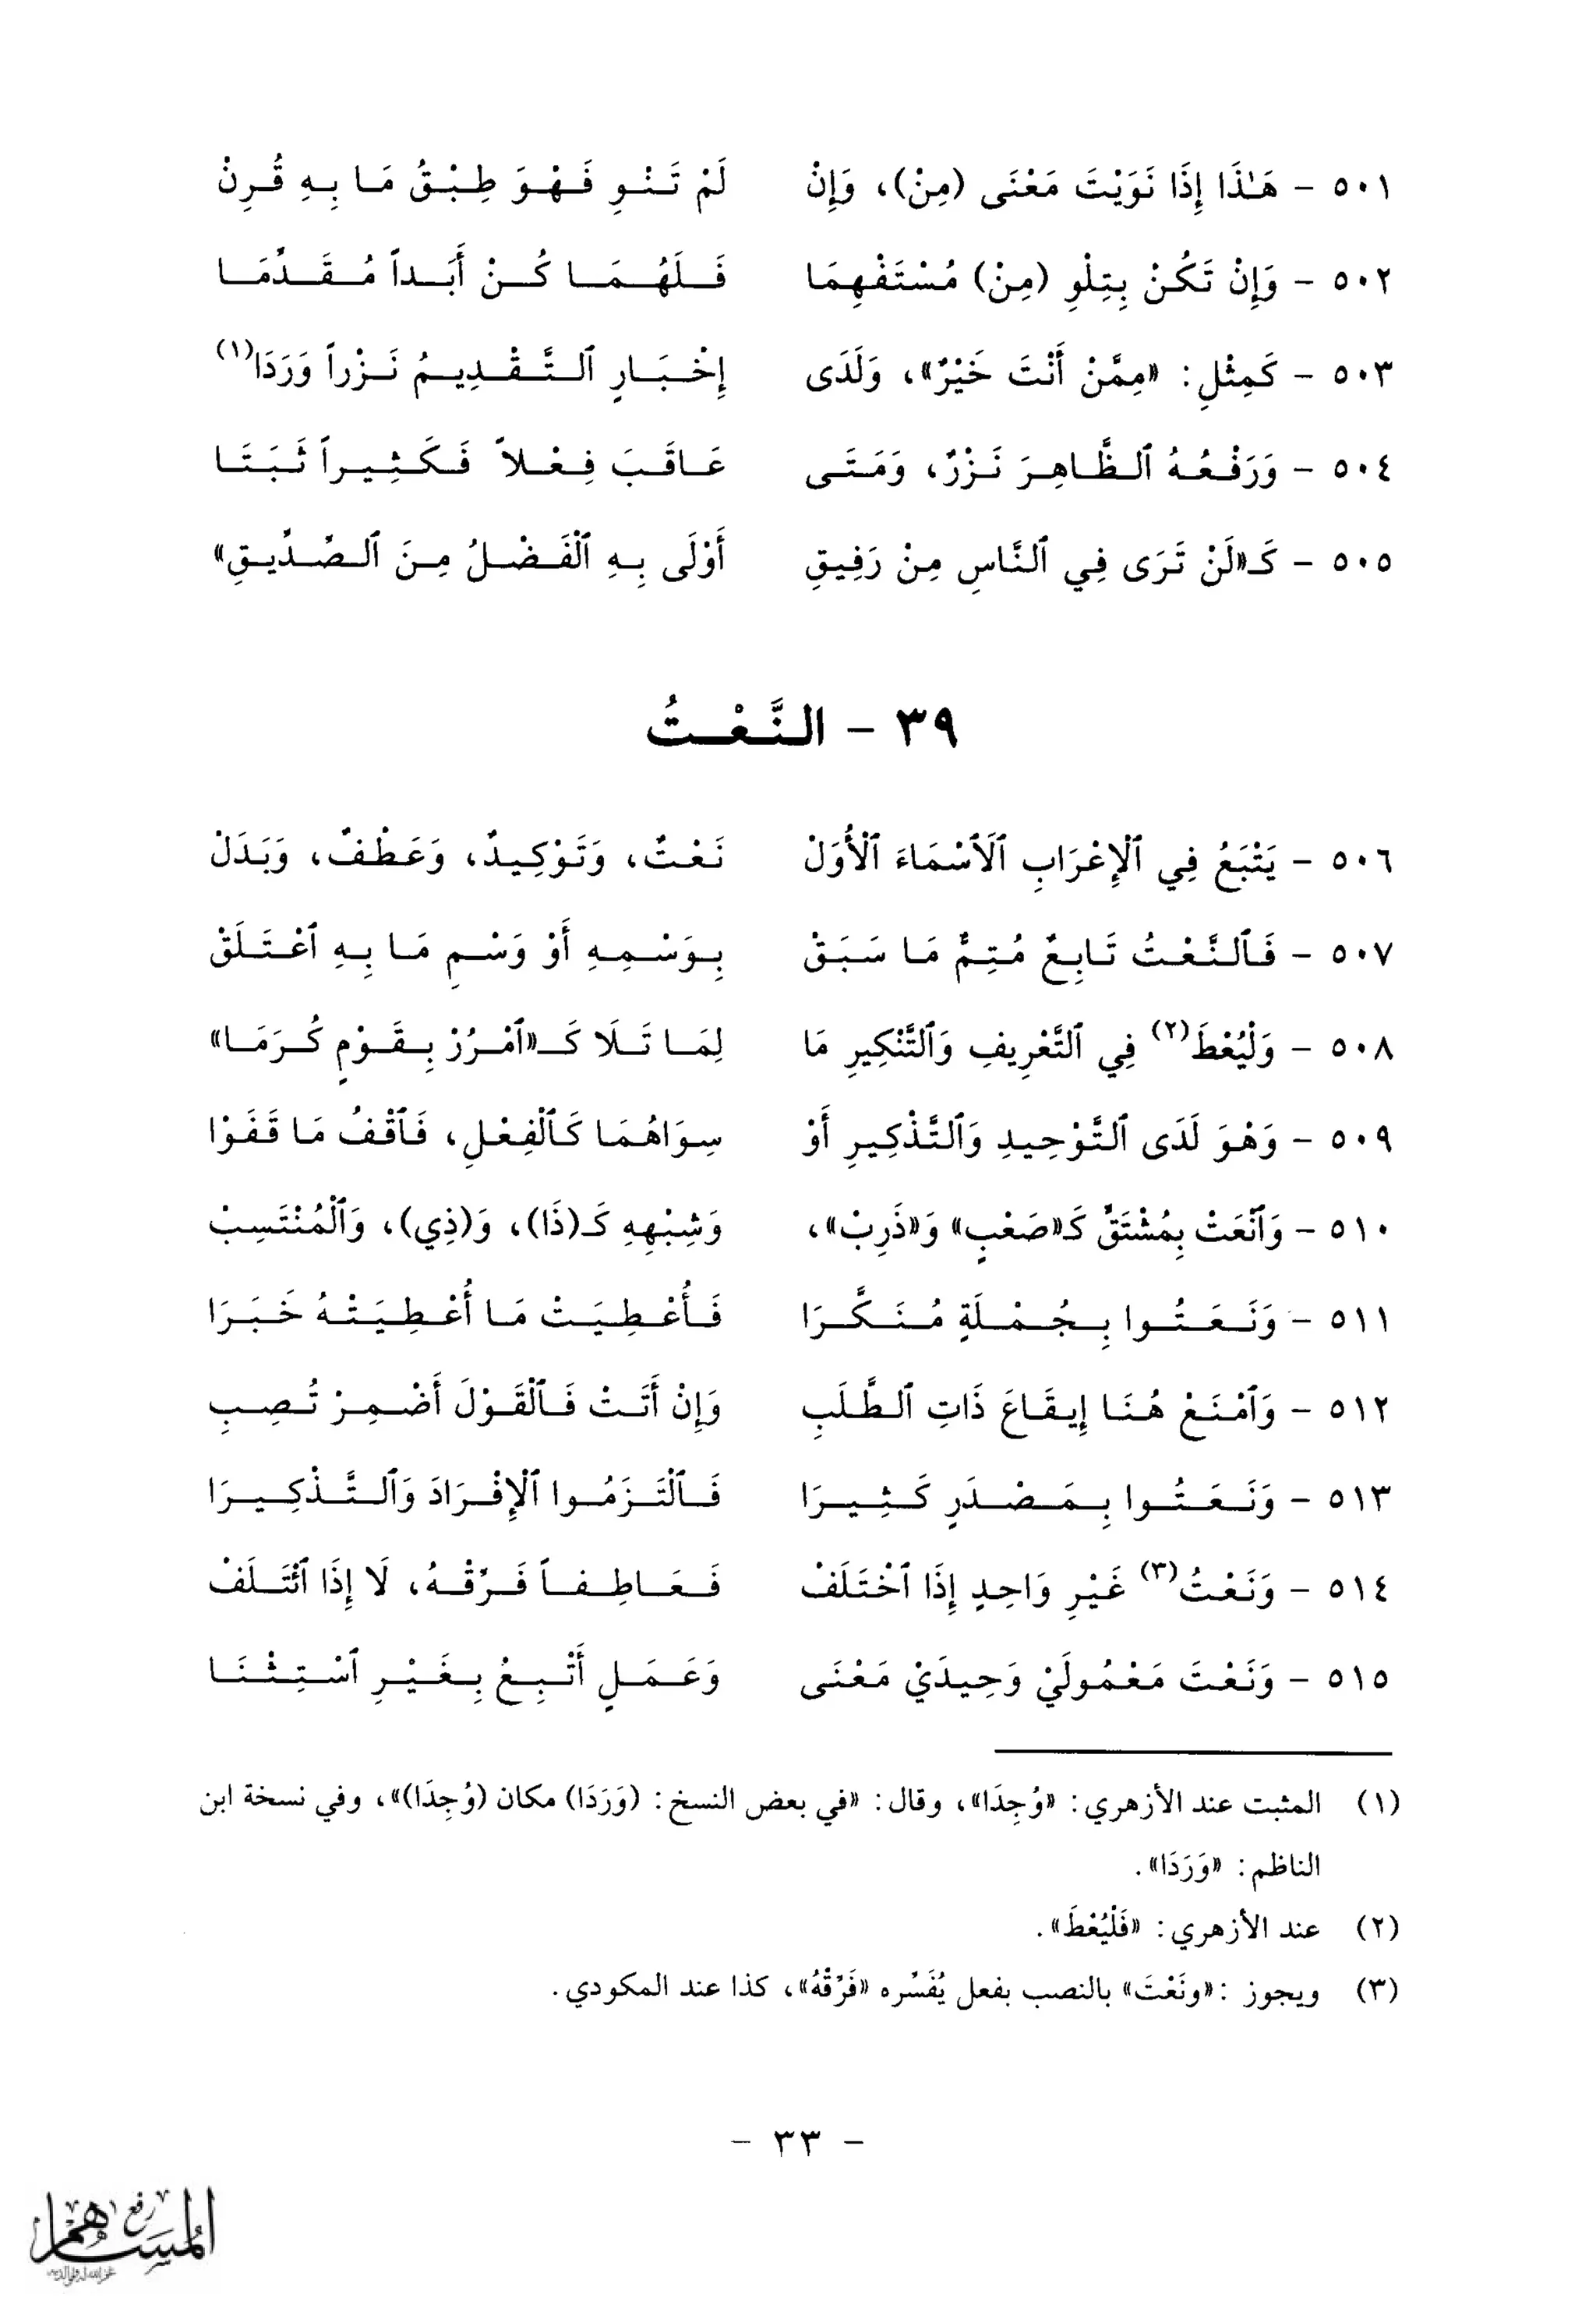 ٥٠١ - هَـٰذَا إِذَا نَوَيْتَ مَعْنَى (مِنْ)، وَإِنْ لَمْ تَنْوِ فَهْوَ طِبْقُ مَا بِهِ قُرِنْ
٥٠٢ - وَإِنْ تَكُنْ بِتِلْوِ (مِنْ) مُسْتَفْهِمَا فَلَهُمَا كُنْ أَبَداً مُقَدِّمَا
٥٠٣ - كَمِثْلِ: «مِمَّنْ أَنْتَ خَيْرٌ»، وَلَدَى إِخْبَارٍ ٱلتَّقْدِيمُ نَزْراً وَرَدَا(١)
٥٠٤ - وَرَفْعُهُ ٱلظَّاهِرَ نَزْرٌ، وَمَتَى عَاقَبَ فِعْلاً فَكَثِيراً ثَبَتَا
٥٠٥ - كَـ«لَنْ تَرَى فِي ٱلنَّاسِ مِنْ رَفِيقِ أَوْلَى بِهِ ٱلْفَضْلُ مِنَ ٱلصِّدِّيقِ»
٣٩ - النَّعْتُ
٥٠٦ - يَتْبَعُ فِي ٱلْإِعْرَابِ ٱلَاسْمَاءَ ٱلْأُوَلْ نَعْتٌ، وَتَوْكِيدٌ، وَعَطْفٌ، وَبَدَلْ
٥٠٧ - فَٱلنَّعْتُ تَابِعٌ مُتِمٌّ مَا سَبَقْ بِوَسْمِهِ أَوْ وَسْمِ مَا بِهِ ٱعْتَلَقْ
٥٠٨ - وَلْيُعْطَ(٢) فِي ٱلتَّعْرِيفِ وَٱلتَّنْكِيرِ مَا لِمَا تَلَا كَـ«ٱمْرُرْ بِقَوْمٍ كُرَمَا»
٥٠٩ - وَهْوَ لَدَى ٱلتَّوْحِيدِ وَٱلتَّذْكِيرِ أَوْ سِوَاهُمَا كَٱلْفِعْلِ، فَٱقْفُ مَا قَفَوْا
٥١٠ - وَٱنْعَتْ بِمُشْتَقٍّ كَـ«صَعْبٍ» وَ«ذَرِبْ»، وَشِبْهِهِ كَـ(ذَا)، وَ(ذِي)، وَٱلْمُنْتَسِبْ
٥١١ - وَنَعَتُوا بِجُمْلَةٍ مُنَكَّرَا فَأُعْطِيَتْ مَا أُعْطِيَتْهُ خَبَرَا
٥١٢ - وَٱمْنَعْ هُنَا إِيقَاعَ ذَاتِ ٱلطَّلَبِ وَإِنْ أَتَتْ فَٱلْقَوْلَ أَضْمِرْ تُصِبِ
٥١٣ - وَنَعَتُوا بِمَصْدَرٍ كَثِيرَا فَٱلْتَزَمُوا ٱلْإِفْرَادَ وَٱلتَّذْكِيرَا
٥١٤ - وَنَعْتُ(٣) غَيْرِ وَاحِدٍ إِذَا ٱخْتَلَفْ فَعَاطِفاً فَرِّقْهُ، لَا إِذَا ٱئْتَلَفْ
٥١٥ - وَنَعْتَ مَعْمُولَيْ وَحِيدَيْ مَعْنَى وَعَمَلٍ أَتْبِعْ بِغَيْرِ ٱسْتِثْنَا
(١) المثبت عند الأزهري: «وُجِدَا»، وقال: «في بعض النسخ: (وَرَدَا) مكان (وُجِدَا)»، وفي نسخة ابن
الناظم: «وَرَدَا».
(٢) عند الأزهري: «فَلْيُعْطَ».
(٣) ويجوز: «ونَعْتَ» بالنصب بفعل يُفَسِّره «فَرِّقْهُ»، كذا عند المكودي.
- ٣٣ -